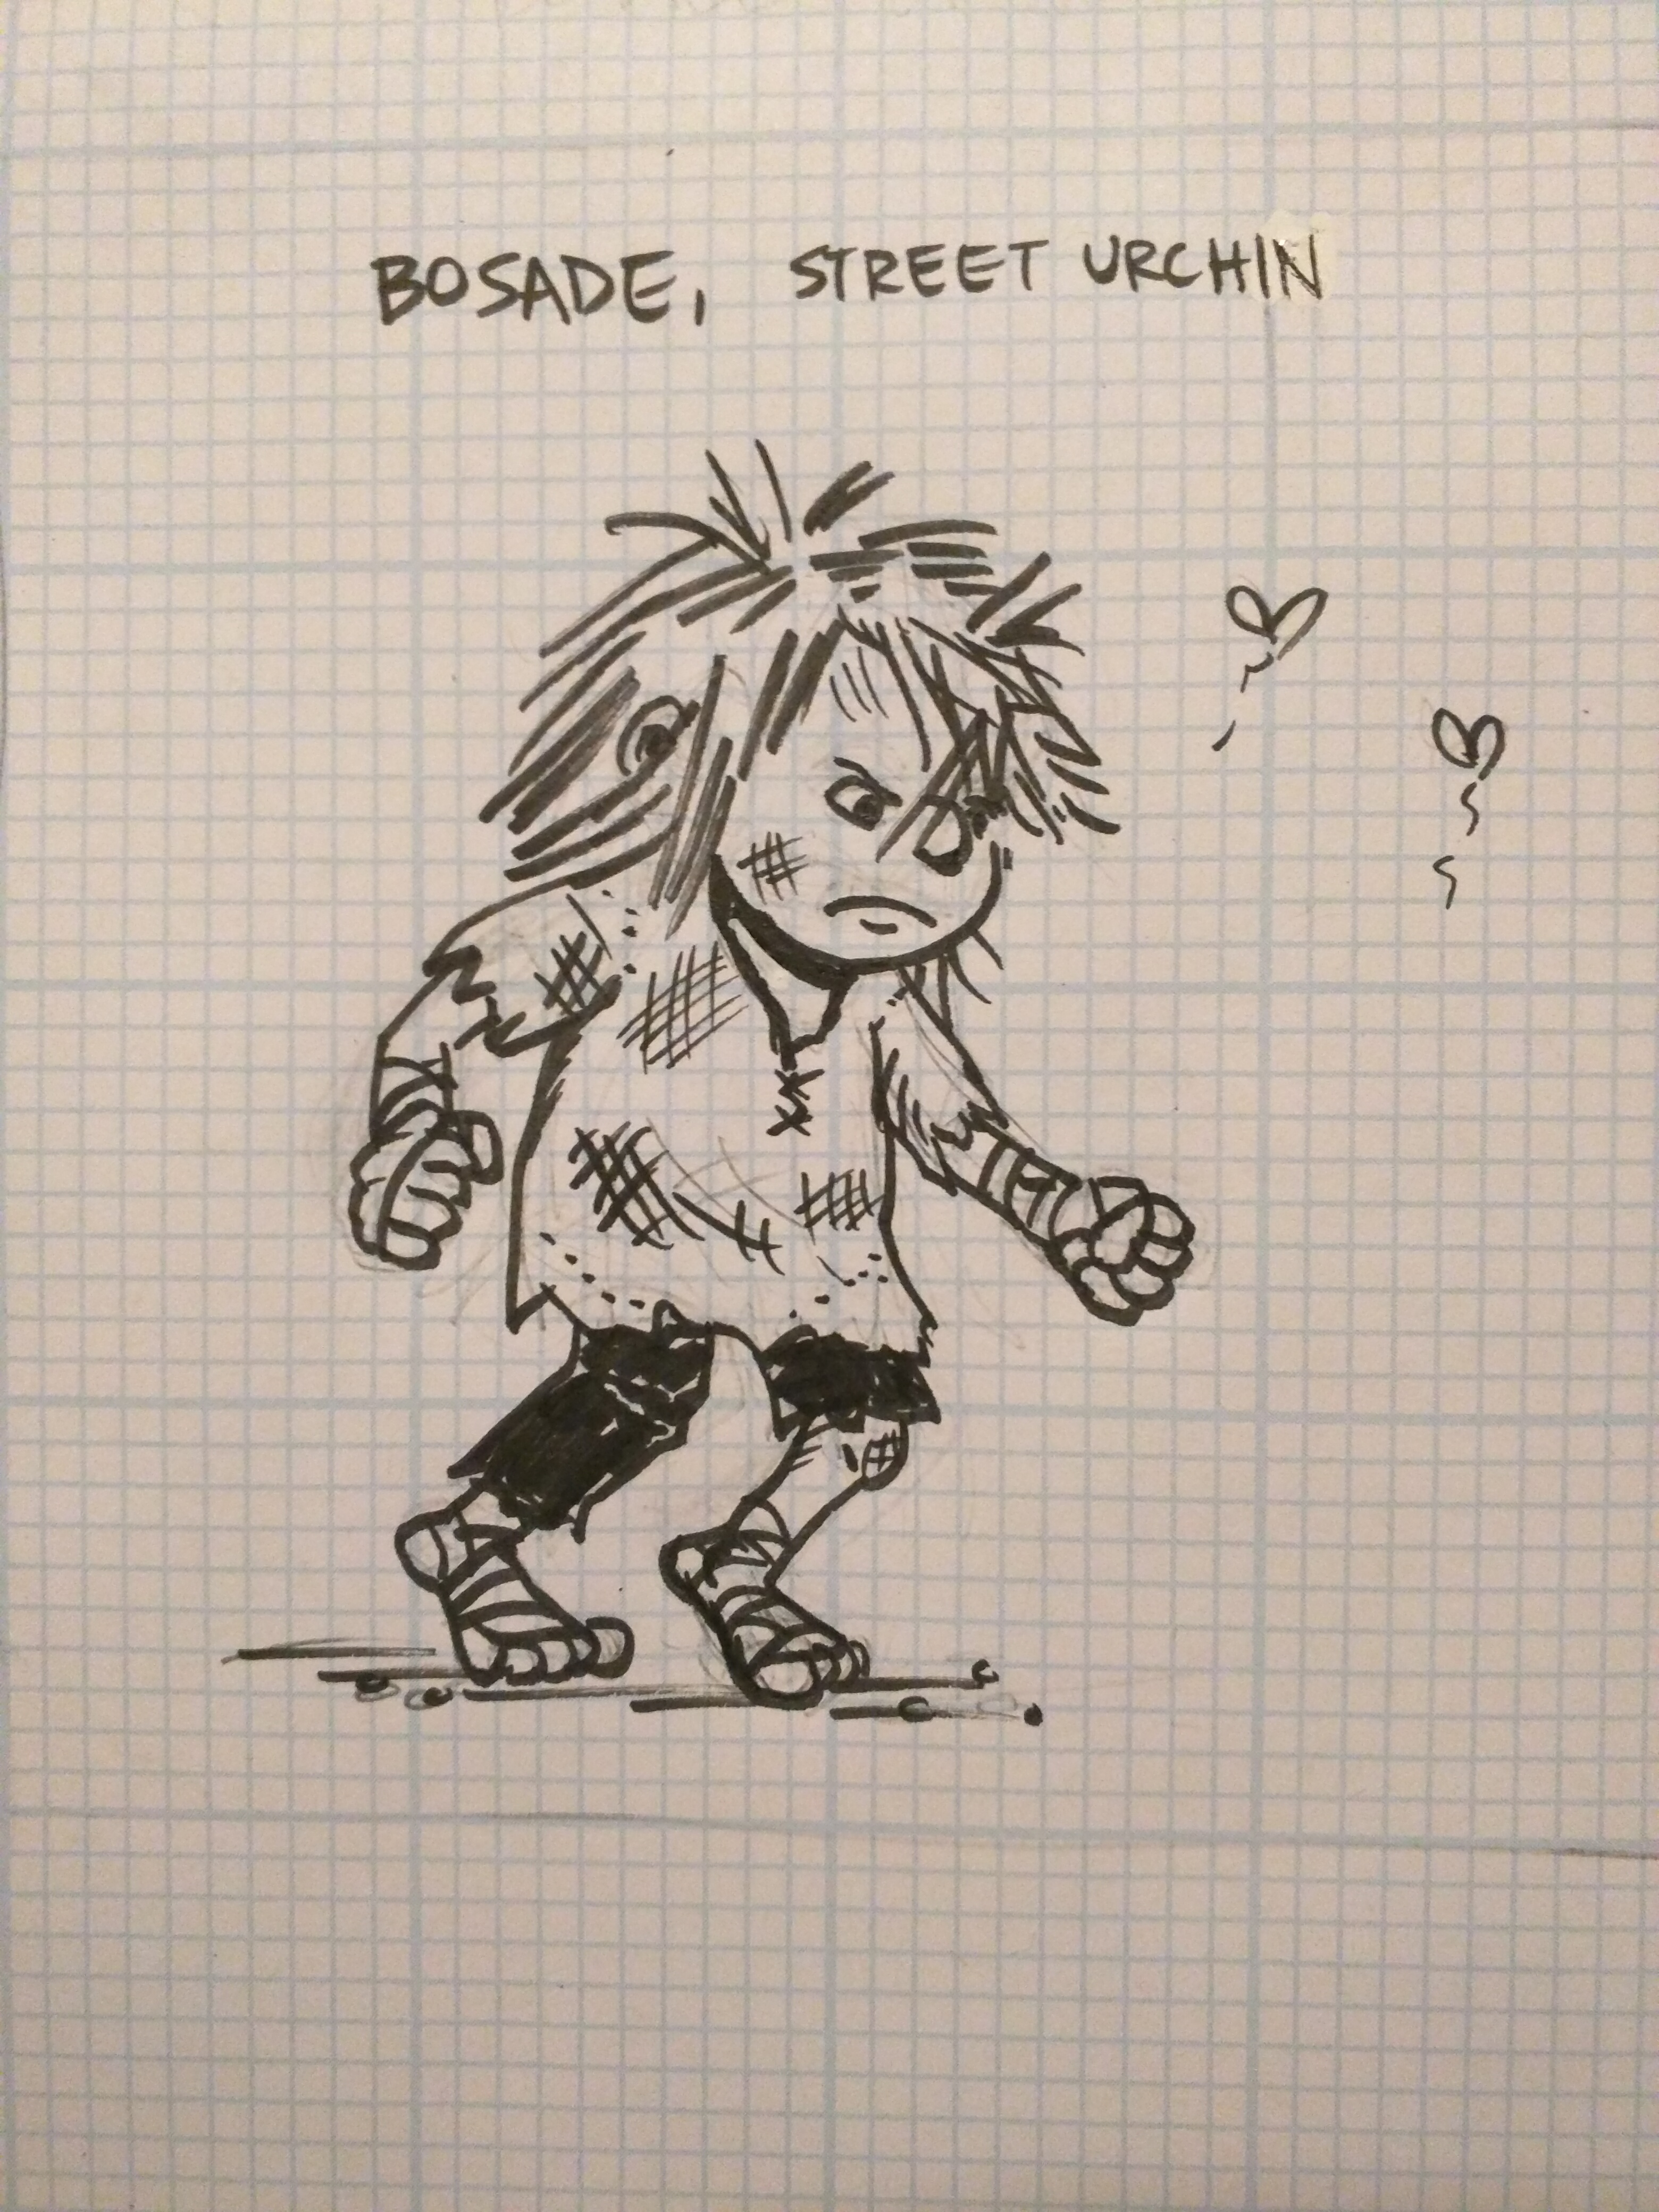 BOSADE, STREET URCHIN